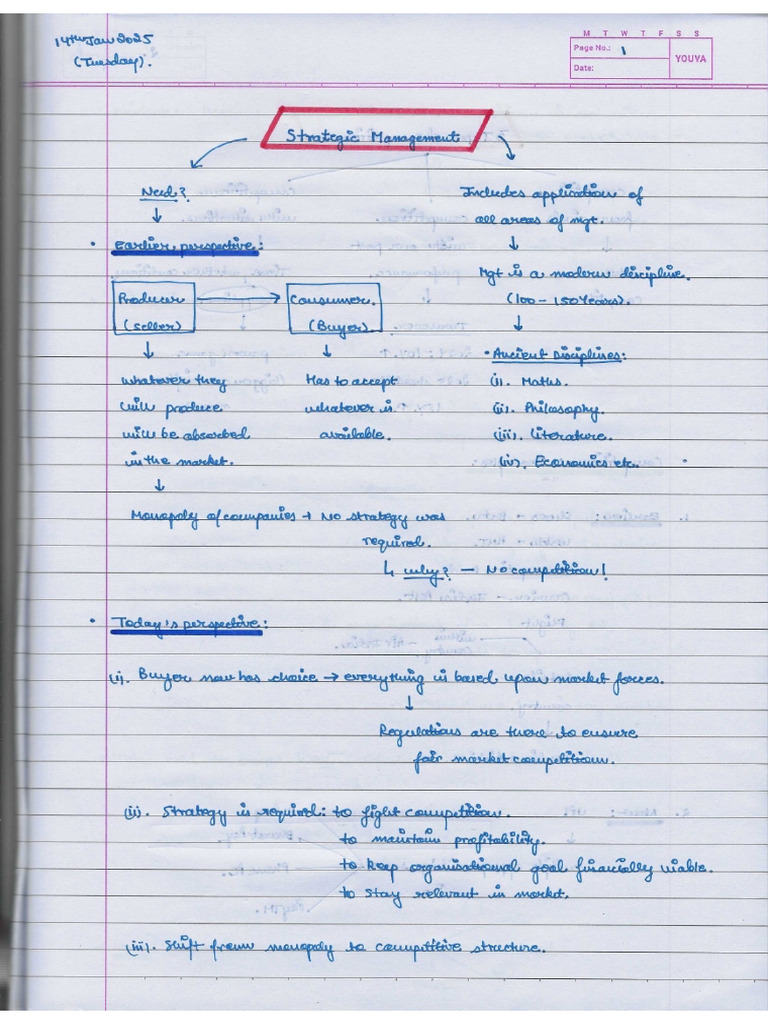 14th Jan 2025
(Tuesday).
M T W T F S S
Page No.: 1
YOUVA
Date:
Strategic Management
Need?
Includes application of
all areas of mgt.
• Earlier perspective:
Mgt is a modern discipline.
(100 - 150 Years).
Producer → Consumer.
(Seller) (Buyer)
• Ancient Disciplines:
whatever they
will produce
will be absorbed
in the market.
Has to accept
whatever is
available.
(i). Maths.
(ii). Philosophy.
(iii). Literature.
(iv). Economics etc.
Monopoly of companies → No strategy was
required.
↳ why? — No competition!
• Today's perspective:
(i). Buyer now has choice → everything is based upon market forces.
Regulations are there to ensure
fair market competition.
(ii). Strategy is required: to fight competition.
to maintain profitability.
to keep organisational goal financially viable.
to stay relevant in market.
(iii). Shift from monopoly to competitive structure.